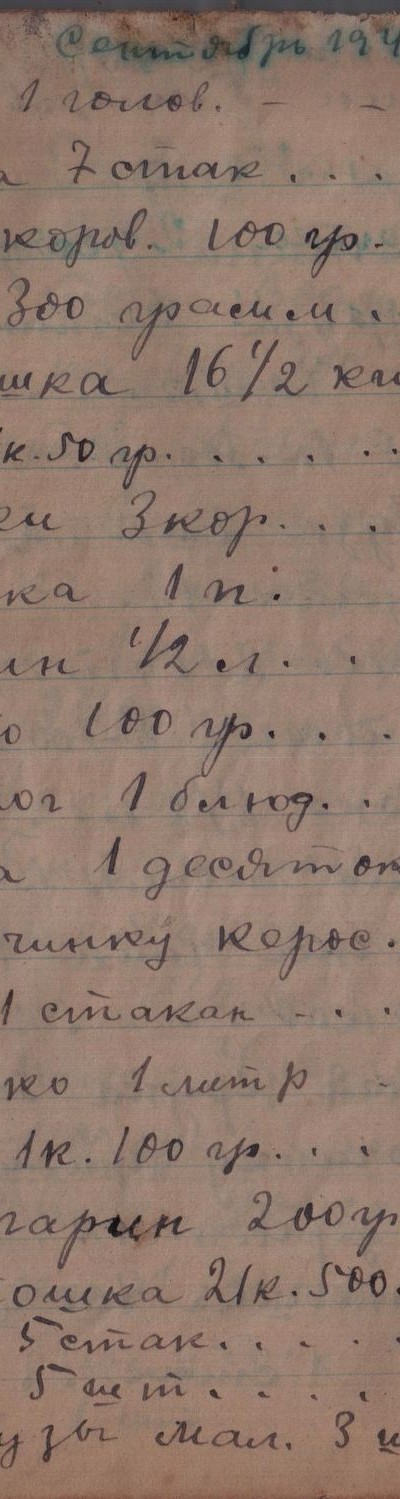 Сентябрь 194
1 голов. - -
а 7 стак . . .
коров. 100 гр.
300 грамм .
шка 16 1/2 ки
к. 50 гр. . . . . .
ки 3 кор. . .
ка 1 п.
ин 1/2 л. .
о 100 гр. . .
ог 1 блюд. .
а 1 десяток
чинку керос.
1 стакан - . .
ко 1 литр -
1 к. 100 гр. . .
гарин 200 гр
ошка 21 к. 500.
5 стак. . . . .
5 шт. . . .
узы мал. 3 ш